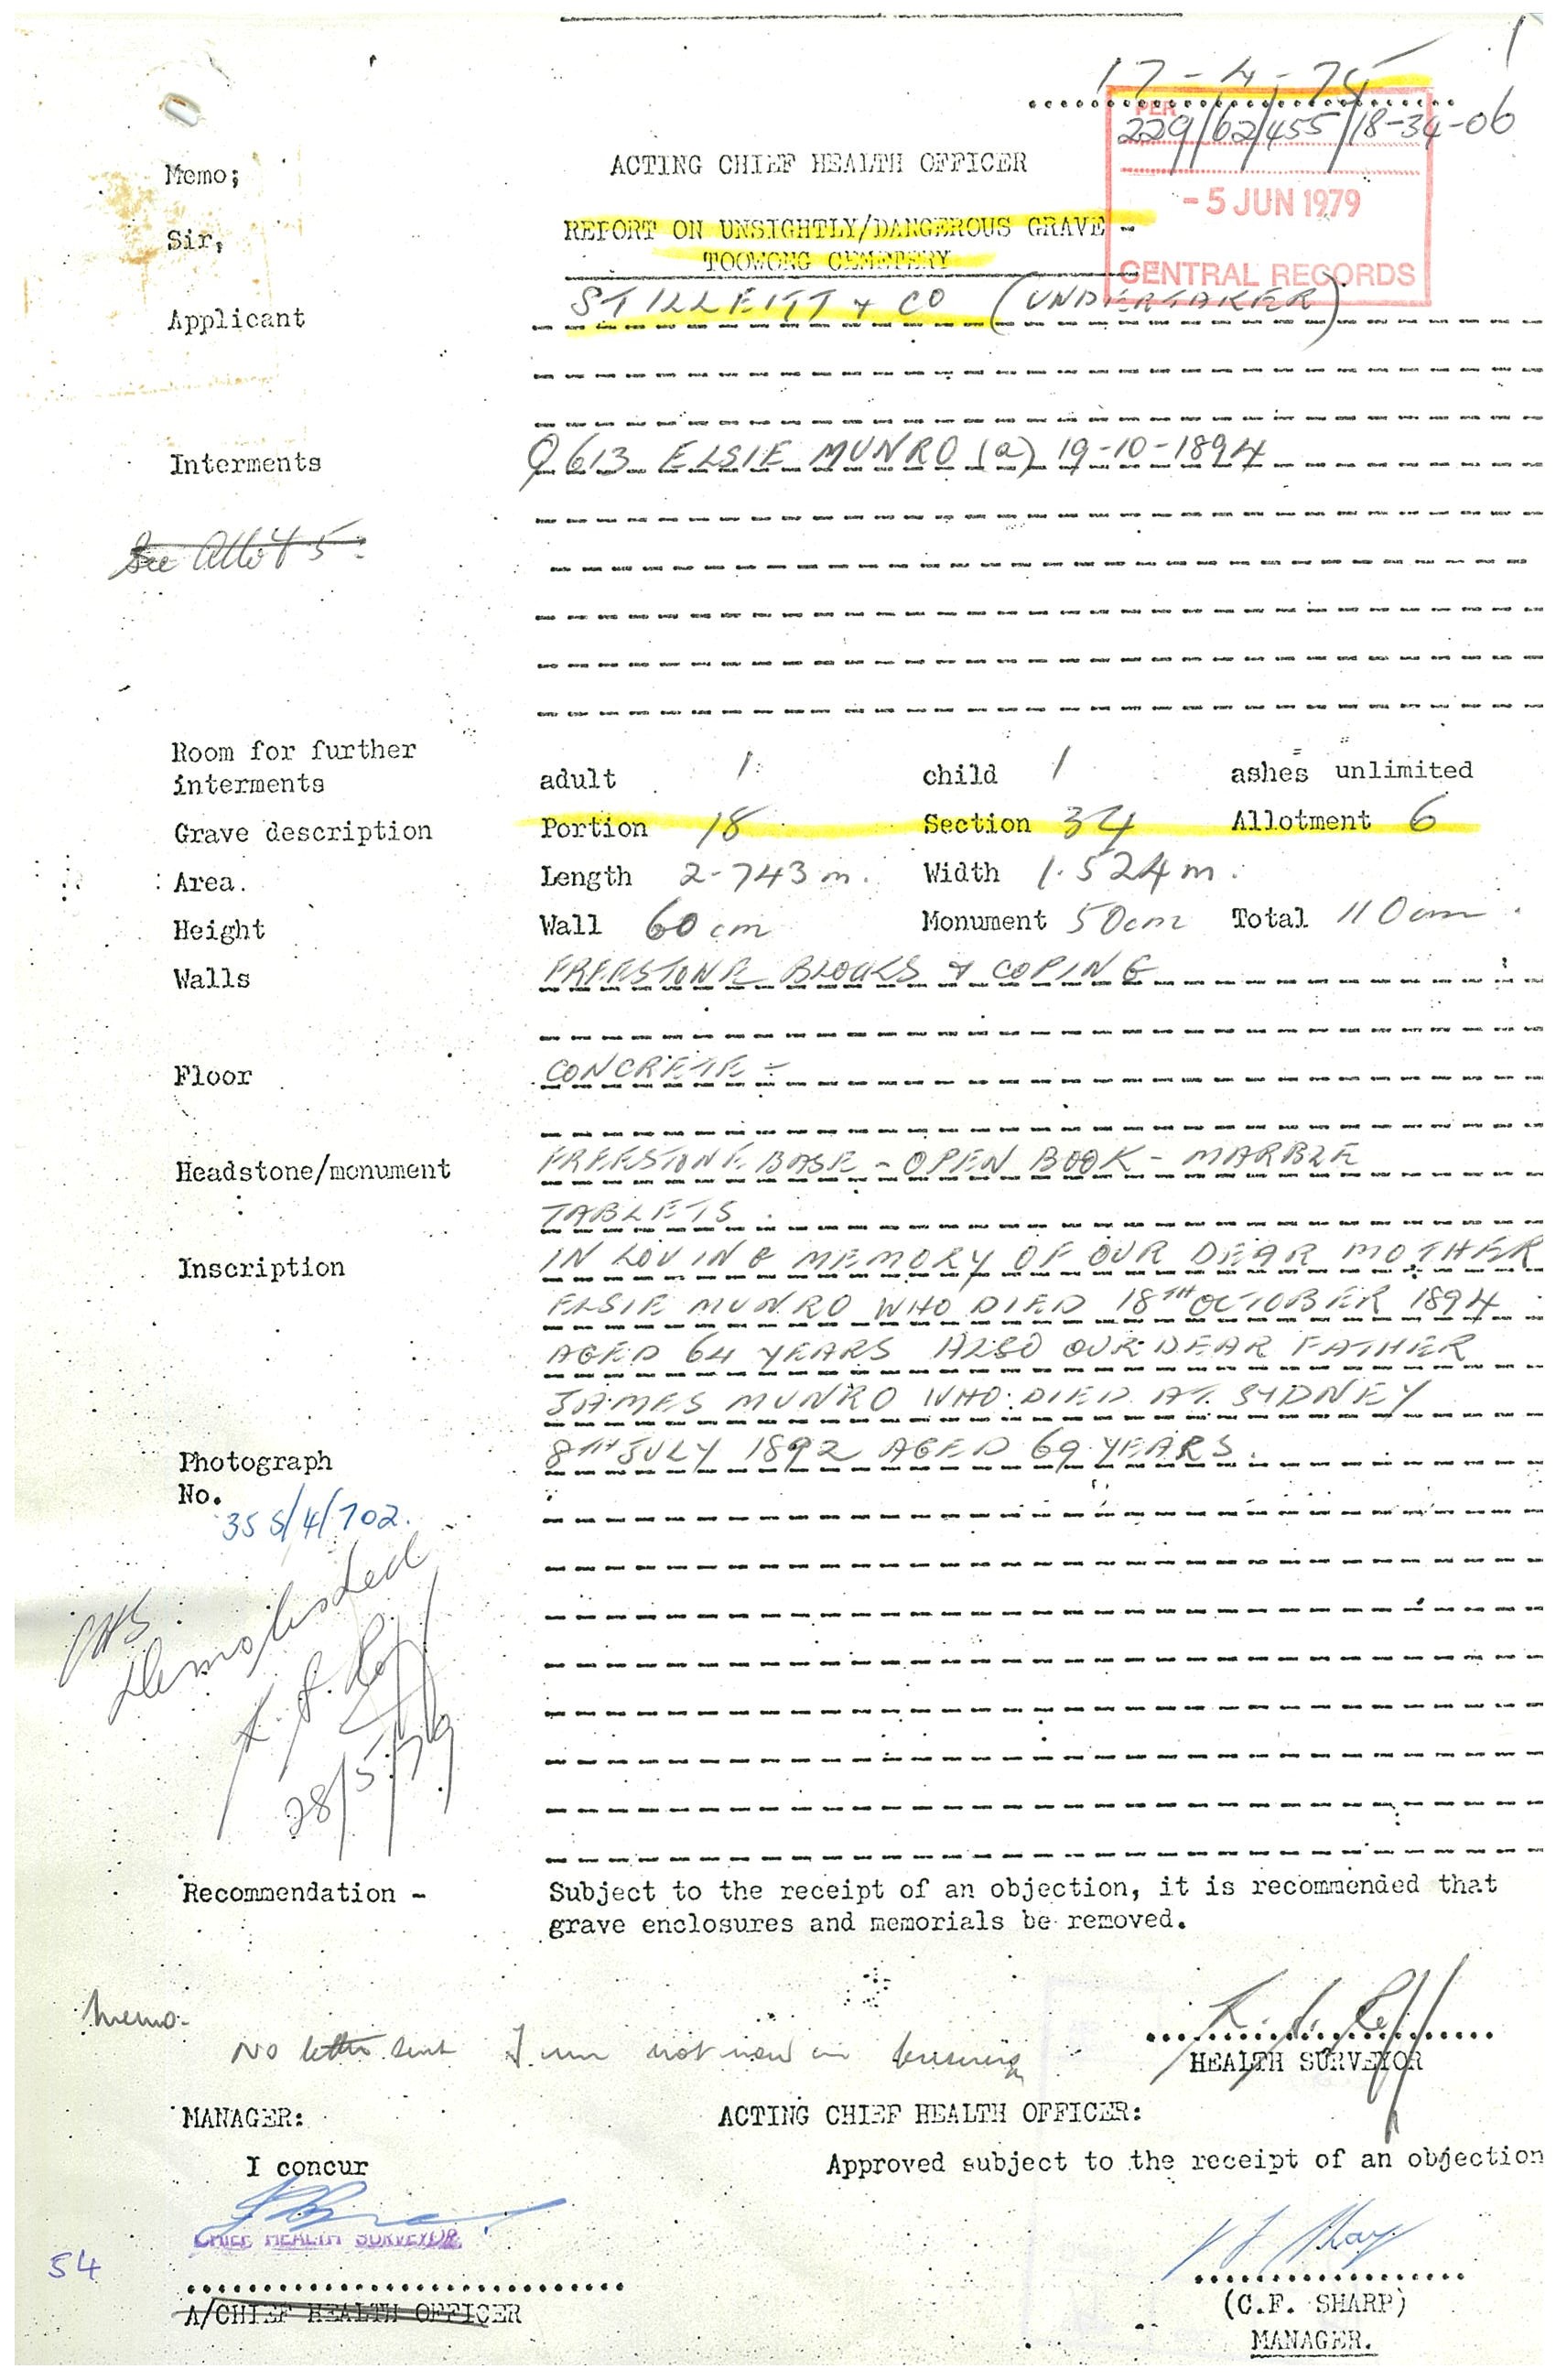 17-4-75
PER
229/62/455/18-34-06
- 5 JUN 1979
CENTRAL RECORDS
Memo;
ACTING CHIEF HEALTH OFFICER
Sir,
REPORT ON UNSIGHTLY/DANGEROUS GRAVE -
TOOWONG CEMETERY
Applicant STILLEITT & CO (UNDERTAKER)
Interments Q613 ELSIE MUNRO (a) 19-10-1894
See Allot 5
Room for further
interments adult 1 child 1 ashes unlimited
Grave description Portion 18 Section 34 Allotment 6
Area. Length 2.743 m. Width 1.524 m.
Height Wall 60 cm Monument 50cm Total 110cm.
Walls FREESTONE BLOCKS & COPING
Floor CONCRETE -
Headstone/monument FREESTONE BASE - OPEN BOOK - MARBLE
TABLETS.
Inscription IN LOVING MEMORY OF OUR DEAR MOTHER
ELSIE MUNRO WHO DIED 18TH OCTOBER 1894
AGED 64 YEARS ALSO OUR DEAR FATHER
JAMES MUNRO WHO DIED AT SYDNEY
8TH JULY 1892 AGED 69 YEARS.
Photograph
No.
355/4/702.
CHS
Demolished
28/5/79
Recommendation - Subject to the receipt of an objection, it is recommended that
grave enclosures and memorials be removed.
Memo-
No letter sent Firm not now in business
HEALTH SURVEYOR
MANAGER: ACTING CHIEF HEALTH OFFICER:
I concur Approved subject to the receipt of an objection
CHIEF HEALTH SURVEYOR
54
A/CHIEF HEALTH OFFICER
(C.F. SHARP)
MANAGER.